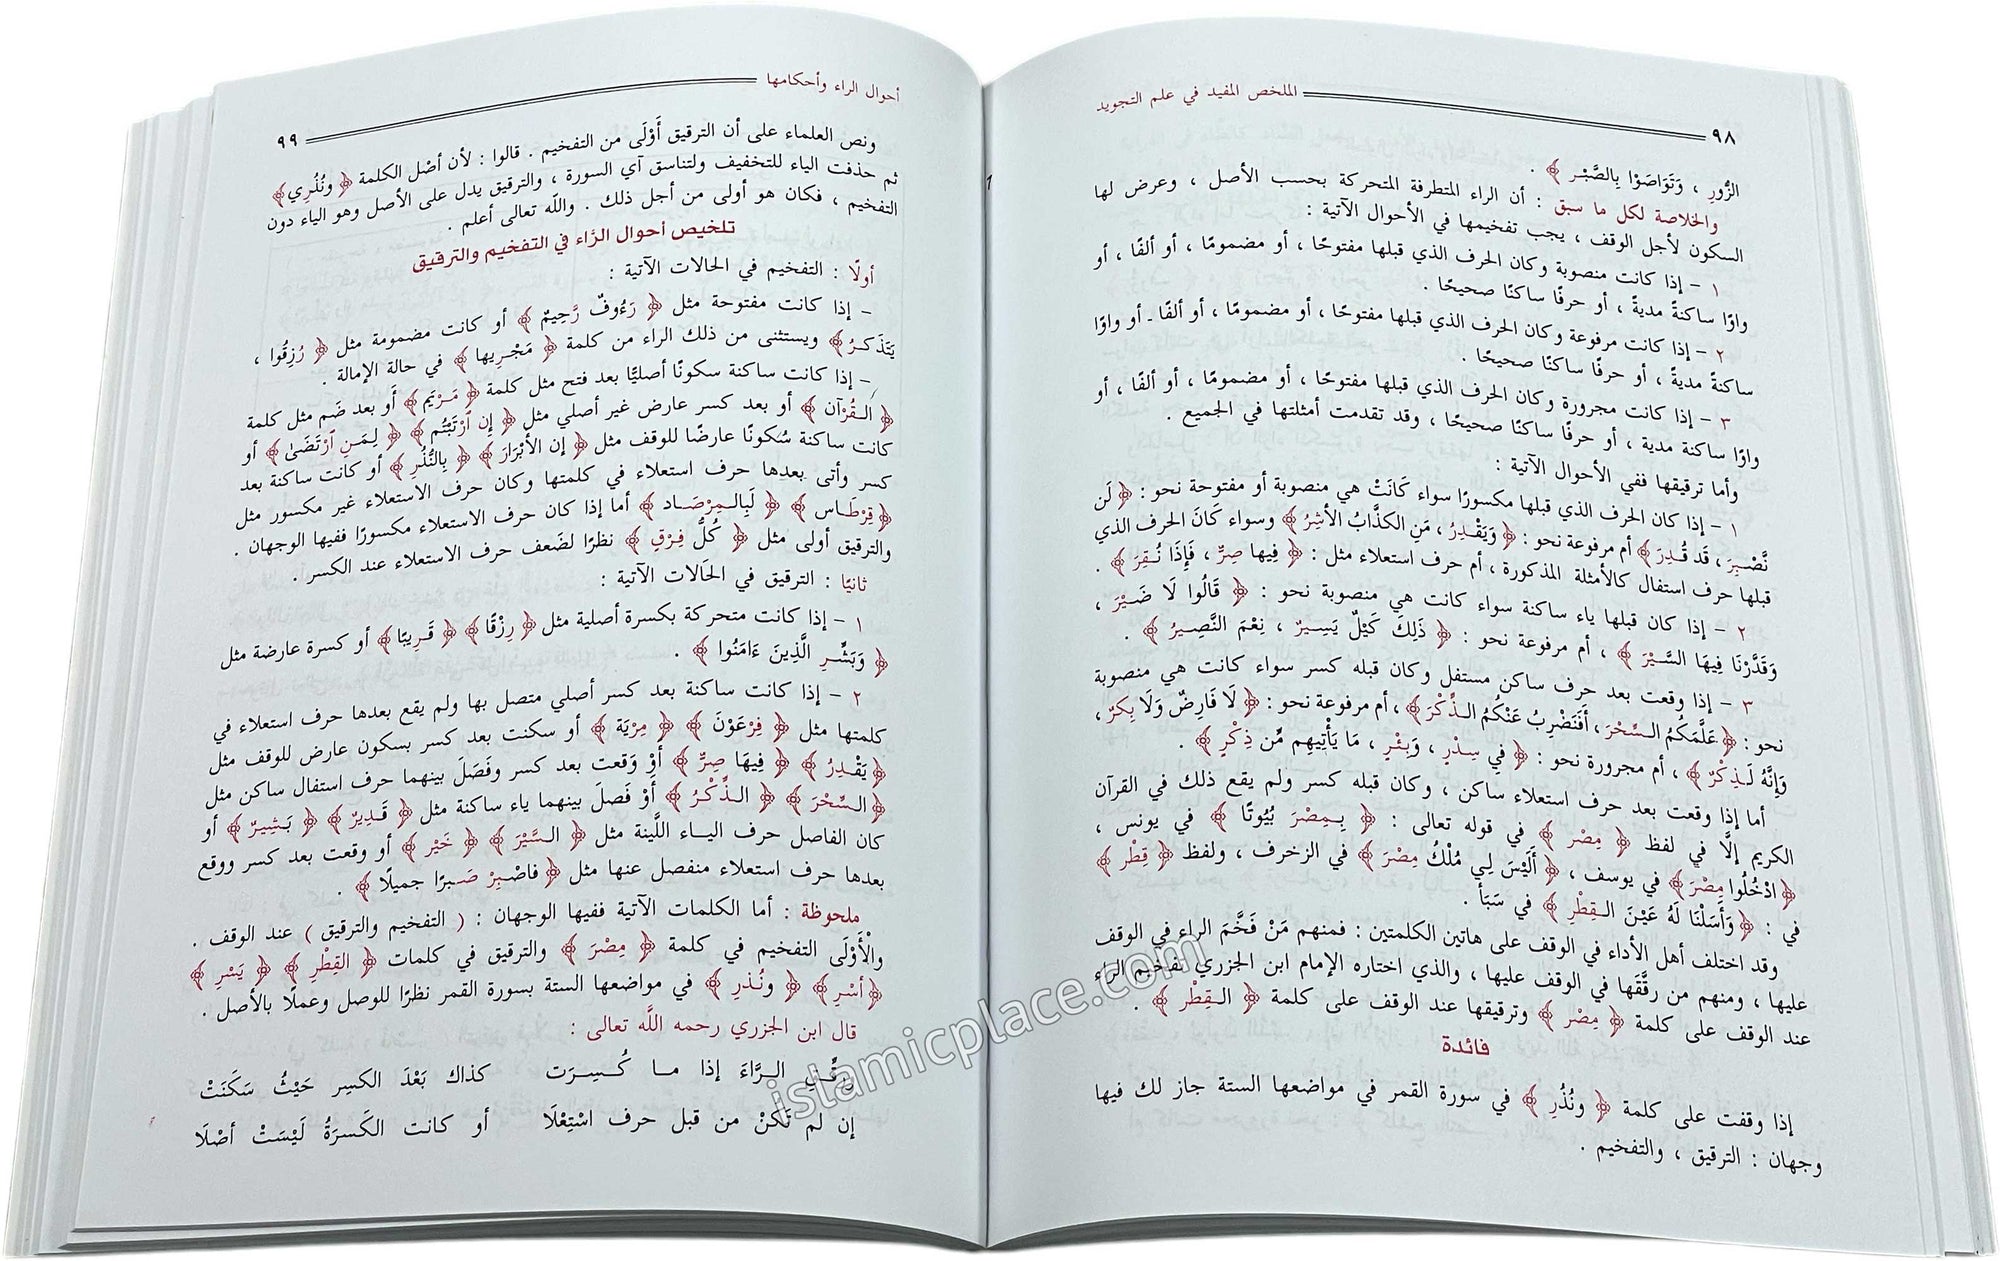 الملخص المفيد في علم التجويد
٩٨
الزُّورِ ، وَتَوَاصَوْا بِالصَّبْرِ ﴾ .
والخلاصة لكل ما سبق : أن الراء المتطرفة المتحركة بحسب الأصل ، وعرض لها
السكون لأجل الوقف ، يجب تفخيمها في الأحوال الآتية :
١ – إذا كانت منصوبة وكان الحرف الذي قبلها مفتوحًا ، أو مضمومًا ، أو ألفًا ، أو
واوًا ساكنةً مديةً ، أو حرفًا ساكنًا صحيحًا .
٢ – إذا كانت مرفوعة وكان الحرف الذي قبلها مفتوحًا ، أو مضمومًا ، أو ألفًا ـ أو واوًا
ساكنةً مديةً ، أو حرفًا ساكنًا صحيحًا .
٣ – إذا كانت مجرورة وكان الحرف الذي قبلها مفتوحًا ، أو مضمومًا ، أو ألفًا ، أو
واوًا ساكنة مدية ، أو حرفًا ساكنًا صحيحًا ، وقد تقدمت أمثلتها في الجميع .
وأما ترقيقها ففي الأحوال الآتية :
١ – إذا كان الحرف الذي قبلها مكسورًا سواء كَانَتْ هي منصوبة أو مفتوحة نحو : ﴿ لَن
نَّصْبِرَ ، قَد قُدِرَ ﴾ أم مرفوعة نحو : ﴿ وَيَقْدِرُ ، مَنِ الكَذَّابُ الأشِرُ ﴾ وسواء كَانَ الحرف الذي
قبلها حرف استفال كالأمثلة المذكورة ، أم حرف استعلاء مثل : ﴿ فِيها صِرٌّ ، فَإِذَا نُقِرَ ﴾ .
٢ – إذا كان قبلها ياء ساكنة سواء كانت هي منصوبة نحو : ﴿ قَالُوا لَا ضَيْرَ ،
وَقَدَّرْنَا فِيهَا السَّيْرَ ﴾ ، أم مرفوعة نحو : ﴿ ذَلِكَ كَيْلٌ يَسِيرٌ ، نِعْمَ النَّصِيرُ ﴾ .
٣ – إذا وقعت بعد حرف ساكن مستفل وكان قبله كسر سواء كانت هي منصوبة
نحو : ﴿ عَلَّمَكُمُ السِّحْرَ ، أَفَنَضْرِبُ عَنْكُمُ الذِّكْرَ ﴾ ، أم مرفوعة نحو : ﴿ لَا فَارِضٌ وَلَا بِكرٌ ،
وَإِنَّهُ لَذِكْرٌ ﴾ ، أم مجرورة نحو : ﴿ فِي سِدْرٍ ، وَبِئْرٍ ، مَا يَأْتِيهِم مِّن ذِكْرٍ ﴾ .
أما إذا وقعت بعد حرف استعلاء ساكن ، وكان قبله كسر ولم يقع ذلك في القرآن
الكريم إلَّا في لفظ ﴿ مِصْر ﴾ في قوله تعالى : ﴿ بِمِصْرَ بُيُوتًا ﴾ في يونس ،
﴿ ادْخُلُوا مِصْرَ ﴾ في يوسف ، ﴿ أَلَيْسَ لِي مُلْكُ مِصْرَ ﴾ في الزخرف ، ولفظ ﴿ قِطْر ﴾
في : ﴿ وَأَسَلْنَا لَهُ عَيْنَ القِطْرِ ﴾ في سَبَأ .
وقد اختلف أهل الأداء في الوقف على هاتين الكلمتين : فمنهم مَنْ فَخَّمَ الراء في الوقف
عليها ، ومنهم من رقَّقَها في الوقف عليها ، والذي اختاره الإمام ابن الجزري تفخيم الراء
عند الوقف على كلمة ﴿ مِصْر ﴾ وترقيقها عند الوقف على كلمة ﴿ القِطْر ﴾ .
فائدة
إذا وقفت على كلمة ﴿ ونُذُرِ ﴾ في سورة القمر في مواضعها الستة جاز لك فيها
وجهان : الترقيق ، والتفخيم .
أحوال الراء وأحكامها
٩٩
ونص العلماء على أن الترقيق أَوْلَى من التفخيم . قالوا : لأن أصْل الكلمة ﴿ ونُذُرِي ﴾
ثم حذفت الياء للتخفيف ولتناسق آي السورة ، والترقيق يدل على الأصل وهو الياء دون
التفخيم ، فكان هو أولى من أجل ذلك . واللّه تعالى أعلم .
تلخيص أحوال الرَّاء في التفخيم والترقيق
أولًا : التفخيم في الحالات الآتية :
– إذا كانت مفتوحة مثل ﴿ رَءُوفٌ رَّحِيمٌ ﴾ أو كانت مضمومة مثل ﴿ رُزِقُوا ،
يَتَذَكرُ ﴾ ويستثنى من ذلك الراء من كلمة ﴿ مَجْرِيها ﴾ في حالة الإمالة .
– إذا كانت ساكنة سكونًا أصليًّا بعد فتح مثل كلمة ﴿ مَرْيَم ﴾ أو بعد ضَم مثل كلمة
﴿ القُرْآن ﴾ أو بعد كسر عارض غير أصلي مثل ﴿ إِن ٱرْتَبْتُم ﴾ ﴿ لِمَنِ ٱرْتَضَىٰ ﴾ أو
كانت ساكنة سُكونًا عارضًا للوقف مثل ﴿ إن الأبْرَارَ ﴾ ﴿ بِالنُّذُرِ ﴾ أو كانت ساكنة بعد
كسر وأتى بعدها حرف استعلاء في كلمتها وكان حرف الاستعلاء غير مكسور مثل
﴿ قِرْطَاس ﴾ ﴿ لَبِالمِرْصَاد ﴾ أما إذا كان حرف الاستعلاء مكسورًا ففيها الوجهان .
والترقيق أولى مثل ﴿ كُلُّ فِرْقٍ ﴾ نظرًا لضَعف حرف الاستعلاء عند الكسر .
ثانيًا : الترقيق في الحَالات الآتية :
١ – إذا كانت متحركة بكسرة أصلية مثل ﴿ رِزْقًا ﴾ ﴿ قَرِيبًا ﴾ أو كسرة عارضة مثل
﴿ وَبَشِّرِ الَّذِينَ ءَامَنُوا ﴾ .
٢ – إذا كانت ساكنة بعد كسر أصلي متصل بها ولم يقع بعدها حرف استعلاء في
كلمتها مثل ﴿ فِرْعَوْنَ ﴾ ﴿ مِرْيَة ﴾ أو سكنت بعد كسر بسكون عارض للوقف مثل
﴿ يَقْدِرُ ﴾ ﴿ فِيهَا صِرٌّ ﴾ أوْ وَقعت بعد كسر وفَصَلَ بينهما حرف استفال ساكن مثل
﴿ السِّحْرَ ﴾ ﴿ الذِّكْرُ ﴾ أَوْ فَصلَ بينهما ياء ساكنة مثل ﴿ قَدِيرٌ ﴾ ﴿ بَشِيرٌ ﴾ أو
كان الفاصل حرف الياء اللَّينة مثل ﴿ السَّيْرَ ﴾ ﴿ خَيْر ﴾ أو وقعت بعد كسر ووقع
بعدها حرف استعلاء منفصل عنها مثل ﴿ فاصْبِرْ صَبرًا جميلًا ﴾ .
ملحوظة : أما الكلمات الآتية ففيها الوجهان : ( التفخيم والترقيق ) عند الوقف .
والْأَوْلَى التفخيم في كلمة ﴿ مِصْرَ ﴾ والترقيق في كلمات ﴿ القِطْرِ ﴾ ﴿ يَسْرِ ﴾
﴿ أسْرِ ﴾ ﴿ ونُذرِ ﴾ في مواضعها الستة بسورة القمر نظرًا للوصل وعملًا بالأصل .
قال ابن الجزري رحمه اللَّه تعالى :
ورقِّقِ الرَّاءَ إذا ما كُسِرَت كذاك بَعْدَ الكسِر حَيْثُ سَكَنَتْ
إن لم تَكنْ من قبل حرف اسْتِعْلَا أو كانت الكَسرَةُ لَيْسَتْ أصْلَا
islamicplace.com